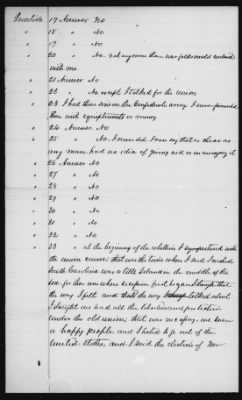 Question 17 Answer No
" 18 " No
" 19 " No
" 20 " No. not any more than
with me
" 21 Answer No
" 22 " No except I talked for the Union
" 23 I had three sons in the Confederate army I never provided
them with equiptments or money
" 24 Answer No
" 25 " No. I never did. I can say that as clear as
any man. had no idea of giving aid or in any way it
" 26 Answer No
" 27 " No
" 28 " No
" 29 " No
" 30 " No
" 31 " No
" 32 " No
" 33 " at the begining of the rebellion I sympathised with
the union cause; that was the time when I said I wished
South Carolina was a little Island in the middle of the
sea for them was where secession first began I thought that
the way I felt and that's the way I talked about
I thought we had all the liberties and protection
under the old union that was necessary. we were
a happy people and I hated to go out of the
United States, and I said the election of Mr